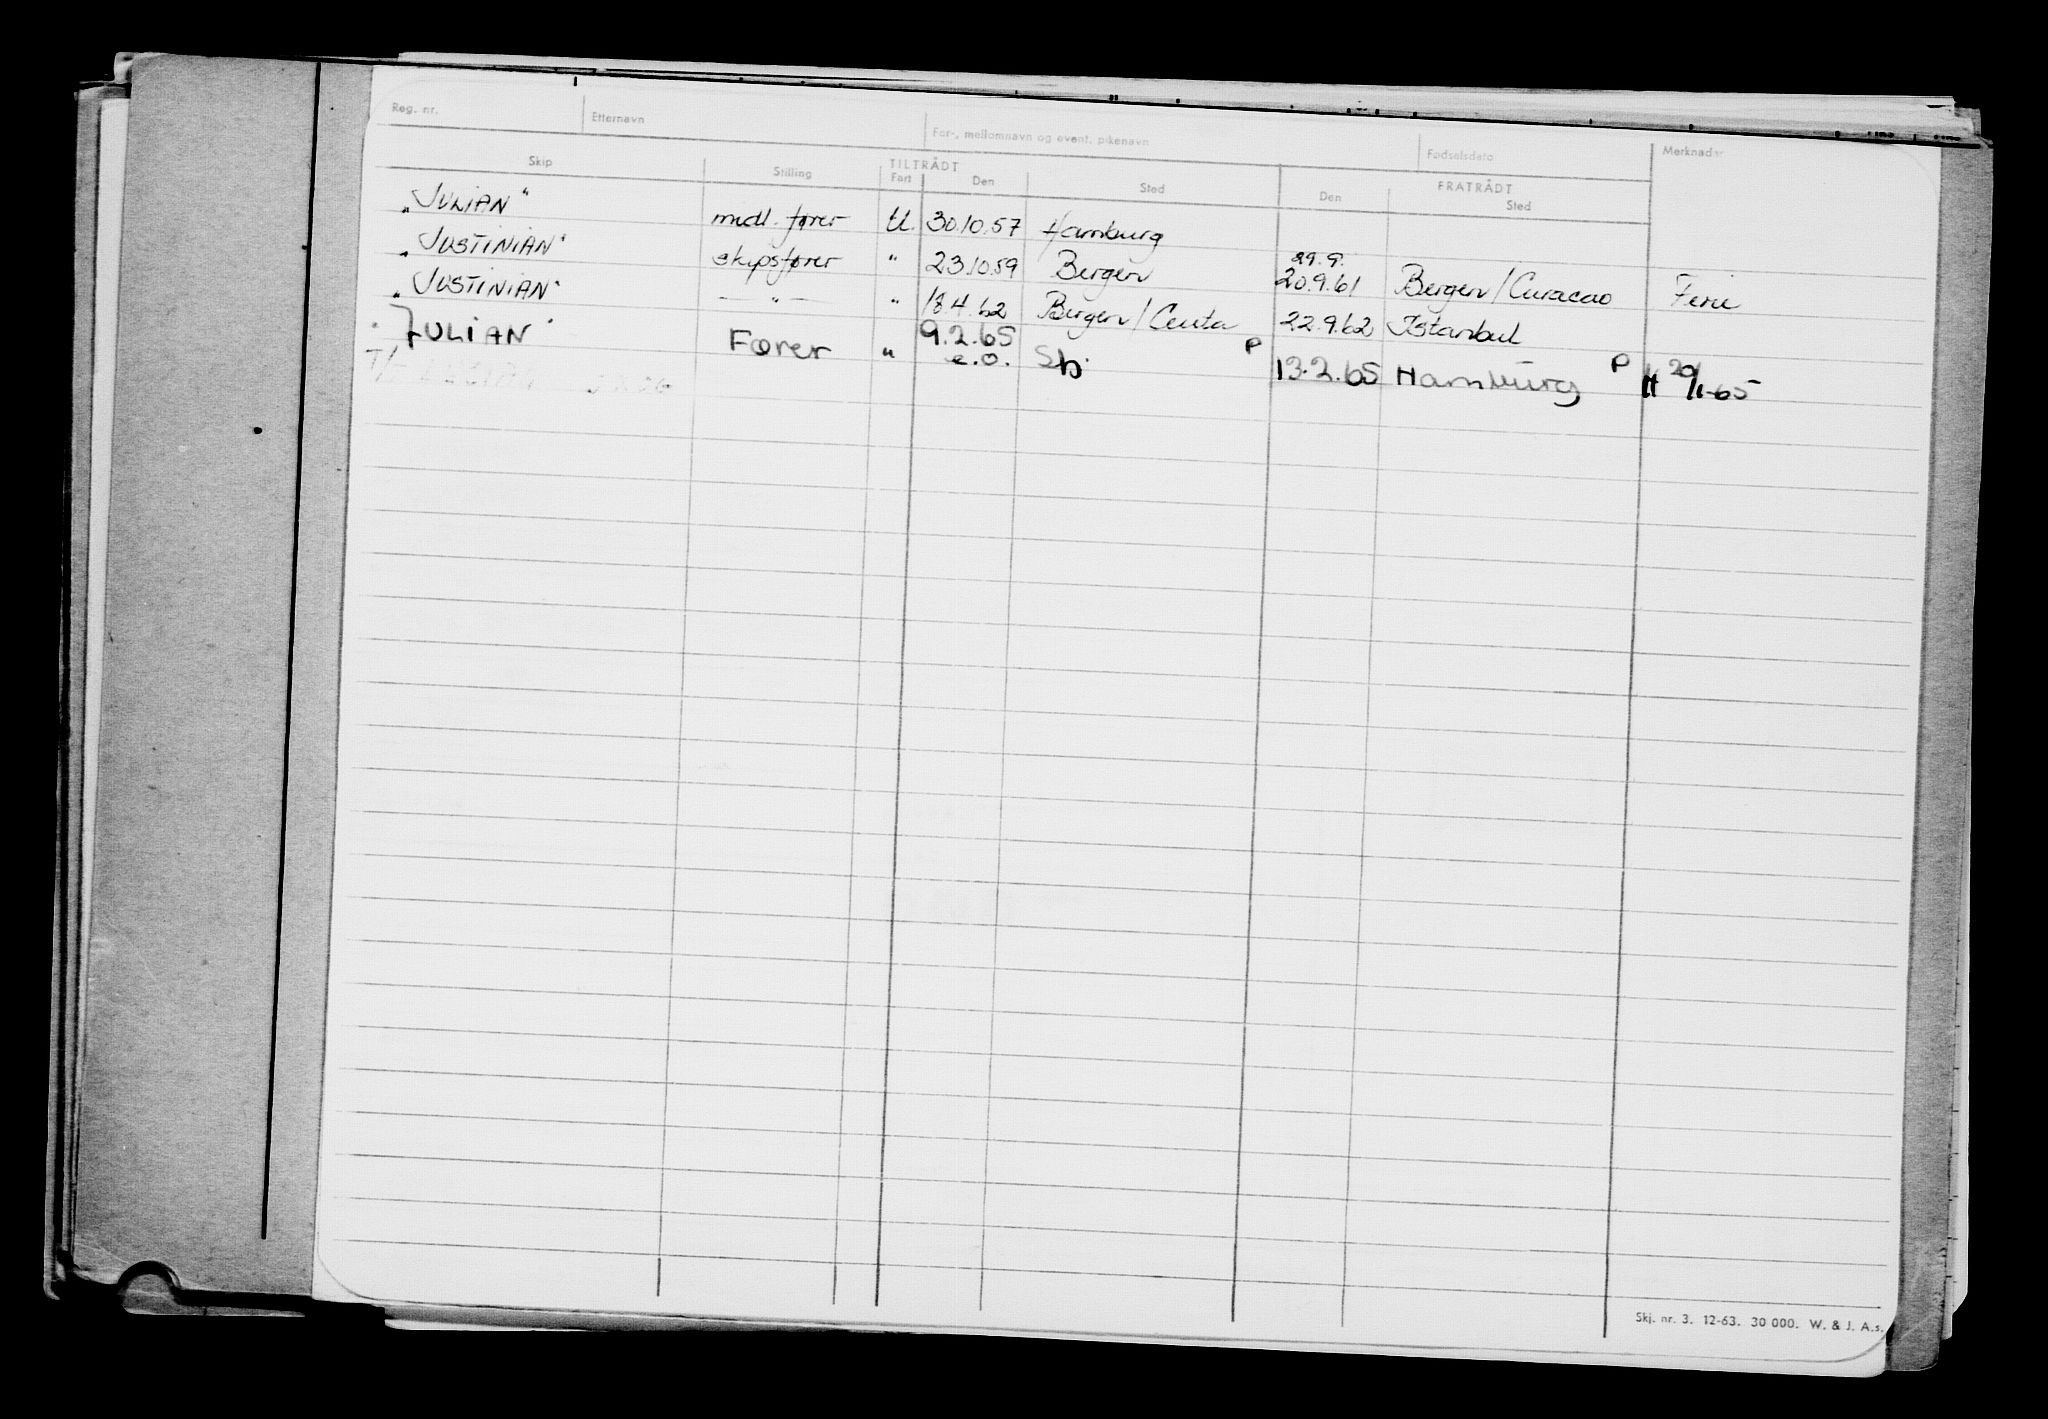 Reg. nr. Etternavn For-, mellomnavn og event. pikenavn Fødselsdato Merknader
Skip Stilling TILTRÅDT Fart Den Sted FRATRÅDT Den Sted
"JULIAN" midl. fører U. 30.10.57 Hamburg
"JUSTINIAN" skipsfører " 23.10.59 Bergen 29.9. 20.9.61 Bergen/Curacao Ferie
"JUSTINIAN" - " - " 18.4.62 Bergen/Ceuta 22.9.62 Istanbul
"JULIAN" Fører " 9.2.65 e.o. Sb. P 13.2.65 Hamburg P H 29/1-65
T/T
Skj. nr. 3. 12-63. 30 000. W. & J. A.s.